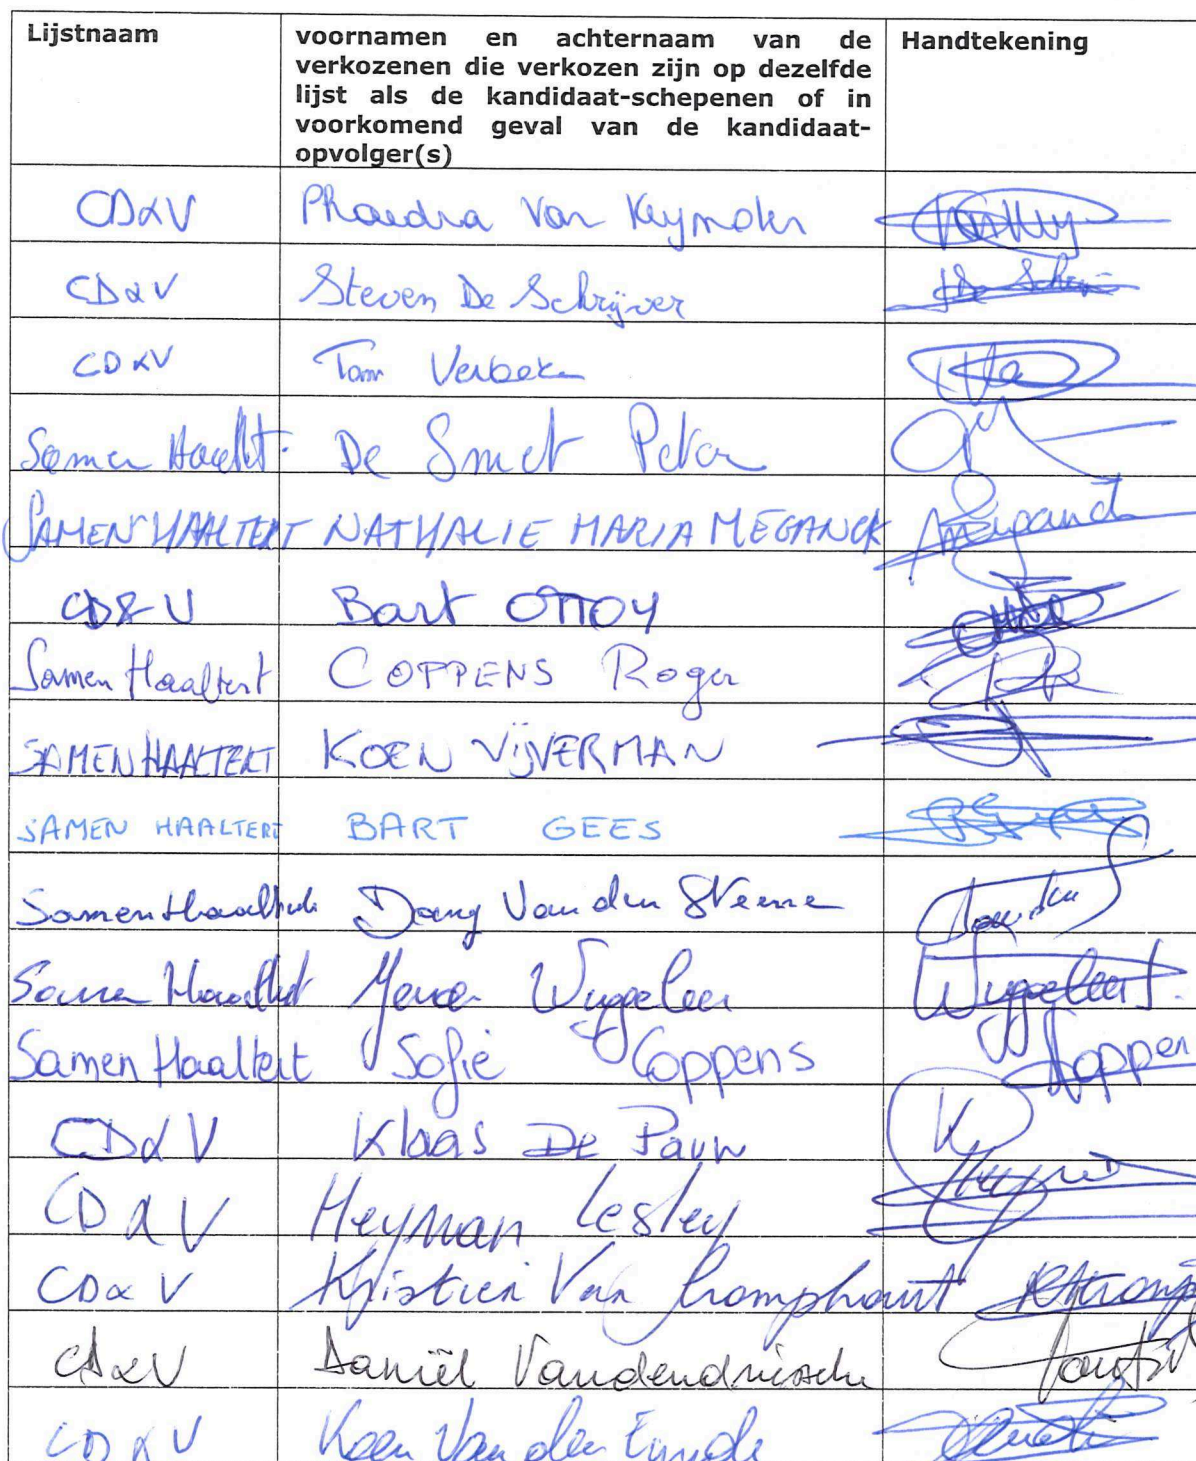 Lijstnaam
voornamen en achternaam van de
verkozenen die verkozen zijn op dezelfde
lijst als de kandidaat-schepenen of in
voorkomend geval van de kandidaat-
opvolger(s)
Handtekening
CD&V Phaedra Van Keymolen
CD&V Steven De Schrijver De Schrij
CD&V Tom Verbeken
Samen Haaltert De Smet Peter
SAMEN HAALTERT NATHALIE MARIA MEGANCK
CD&V Bart OTTOY
Samen Haaltert COPPENS Roger
SAMEN HAALTERT KOEN VIJVERMAN
SAMEN HAALTERT BART GEES
Samen Haaltert Dany Van den Steene
Samen Haaltert Wuypeleer Wuypeleert
Samen Haaltert Sofie Coppens Coppen
CD&V Klaas De Pauw
CD&V Heyman Lesley
CD&V Kristien Van Cromphaut
CD&V Daniël Vandendriessche
CD&V Koen Van den Eynde